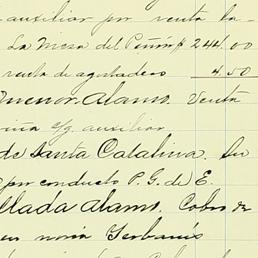 auxiliar por venta la-
La Mesa del Peñón $ 244.00
renta de agostadero 4.50
Alamo. Venta
c/g. auxiliar
de Santa Catalina. Su
por conducto P. G. de E.
llada Alamo. Cobro de
en noria